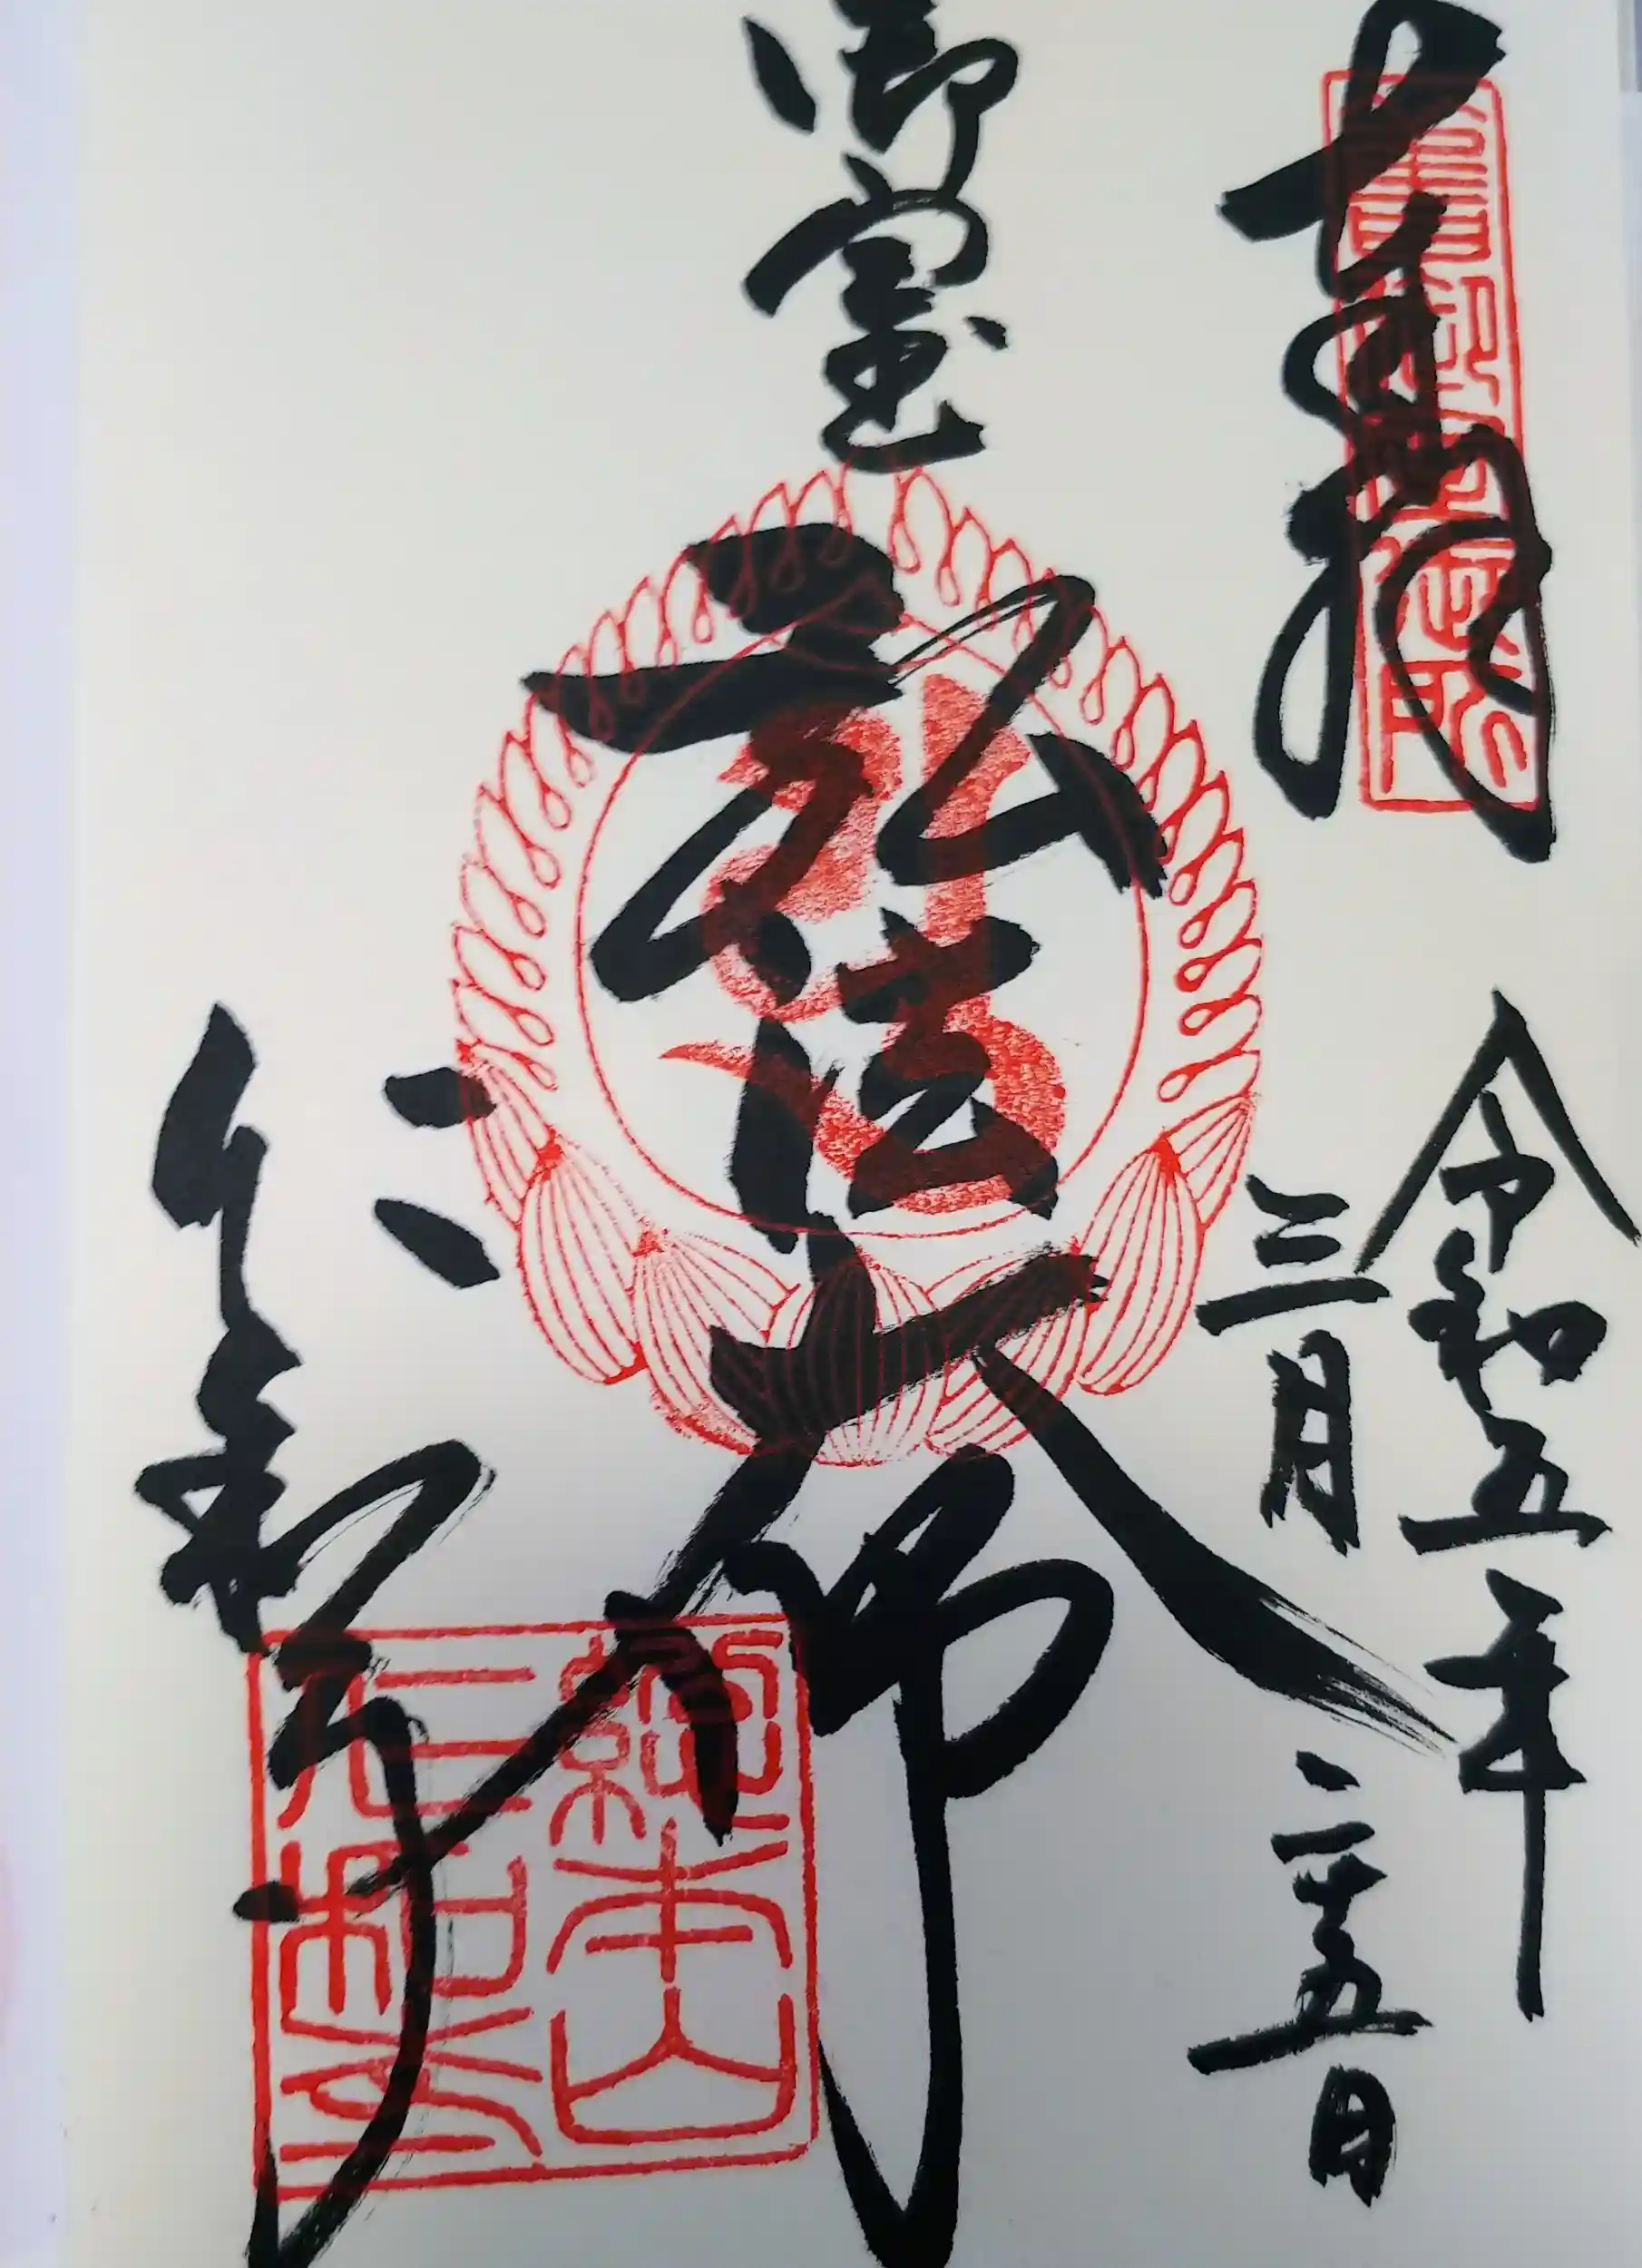 奉拝
令和五年
三月二十五日
御室
弘法大師
仁和寺
総本山
仁和寺